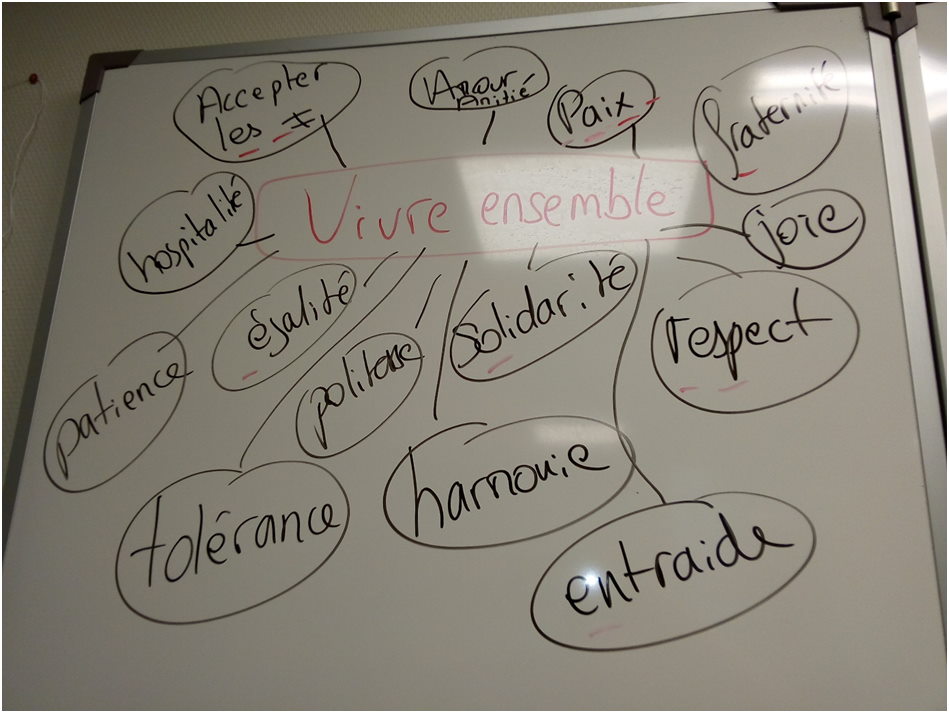 Accepter
les ≠
Amour
Amitié
Paix
fraternité
Vivre ensemble
hospitalité
joie
égalité
solidarité
respect
patience
politesse
tolérance
harmonie
entraide